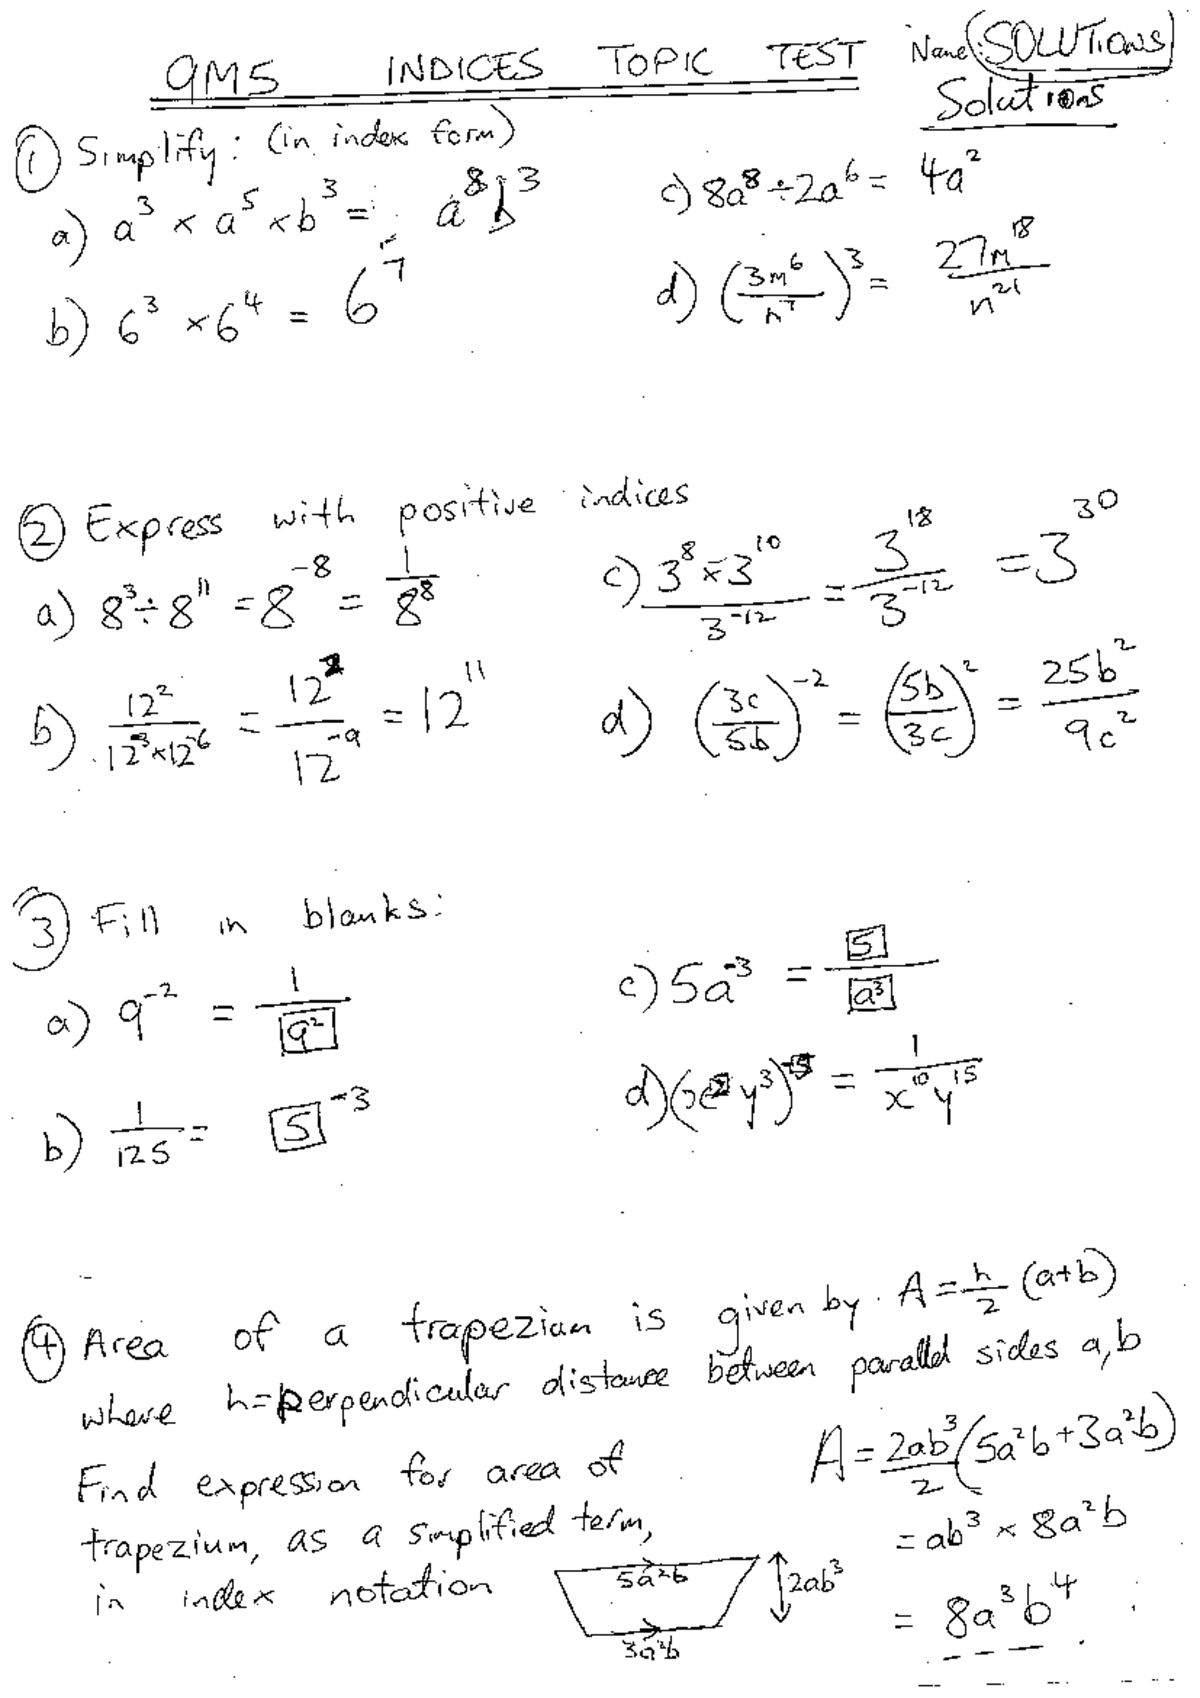 9M5 INDICES TOPIC TEST Name: SOLUTIONS
Solutions
① Simplify: (in index form)
a) a³ × a⁵ × b³ = a⁸b³
c) 8a⁸ ÷ 2a⁶ = 4a²
b) 6³ × 6⁴ = 6⁷
d) (3m⁶/n⁷)³ = 27m¹⁸/n²¹
② Express with positive indices
a) 8³ ÷ 8¹¹ = 8⁻⁸ = 1/8⁸
c) 3⁸ × 3¹⁰/3⁻¹² = 3¹⁸/3⁻¹² = 3³⁰
b) 12²/12⁻³ × 12⁻⁶ = 12²/12⁻⁹ = 12¹¹
d) (3c/5b)⁻² = (5b/3c)² = 25b²/9c²
③ Fill in blanks:
a) 9⁻² = 1/9²
c) 5a⁻³ = 5/a³
b) 1/125 = 5⁻³
d) (x²y³)⁻⁵ = 1/x¹⁰y¹⁵
④ Area of a trapezium is given by A = h/2 (a+b)
where h = perpendicular distance between parallel sides a, b
Find expression for area of
trapezium, as a simplified term,
in index notation
5a²b
2ab³
3a²b
A = 2ab³/2 (5a²b + 3a²b)
= ab³ × 8a²b
= 8a³b⁴